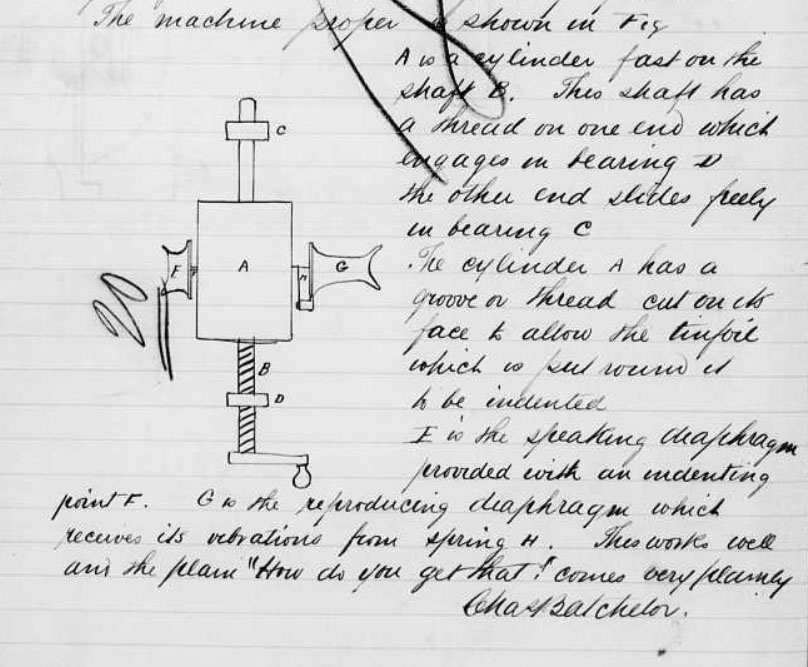 The machine proper is shown in Fig
A is a cylinder fast on the
shaft B. This shaft has
a thread on one end which
engages in bearing D
the other end slides freely
in bearing C
The cylinder A has a
groove or thread cut on its
face to allow the tinfoil
which is put round it
to be indented
E is the speaking diaphragm
provided with an indenting
point F. G is the reproducing diaphragm which
receives its vibrations from spring H. This works well
and the plain "How do you get that?" comes very plainly
Chas Batchelor.
C
E
F
A
H
G
B
D
20